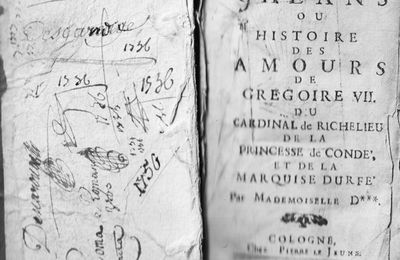 Desgandes
1736
1336
1736
1536
1736
1736
Romane
gros
GALANS
OU
HISTOIRE
DES
AMOURS
DE
GREGOIRE VII.
DU
CARDINAL de RICHELIEU
DE LA
PRINCESSE de CONDE',
ET DE LA
MARQUISE DURFE'
Par MADEMOISELLE D***.
COLOGNE,
Chez PIERRE LE JEUNE.